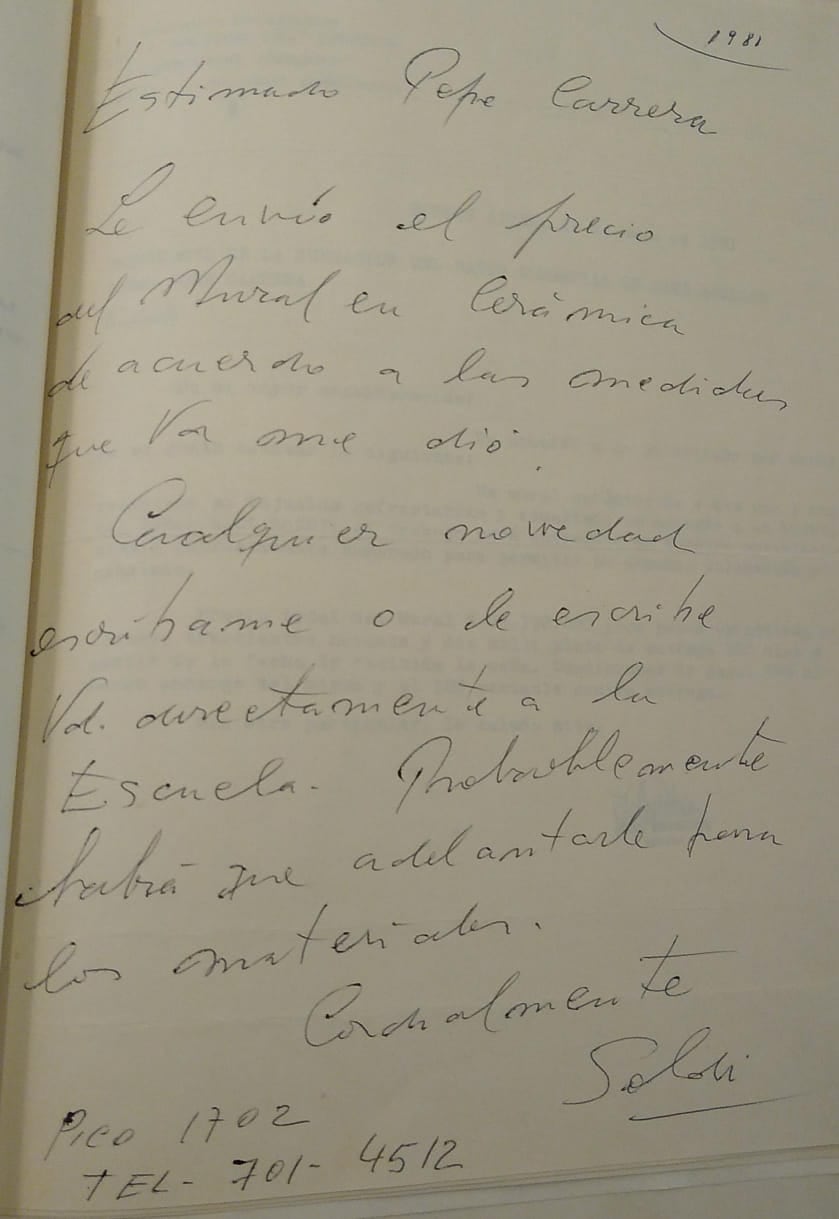 1981
Estimado Pepe Carrera
Le envío el precio
del Mural en Cerámica
de acuerdo a las medidas
que Vd me dió.
Cualquier novedad
escríbame o le escribe
Vd. directamente a la
Escuela. Probablemente
habrá que adelantarle para
los materiales.
Cordialmente
Soldi
Pico 1702
TEL- 701- 4512